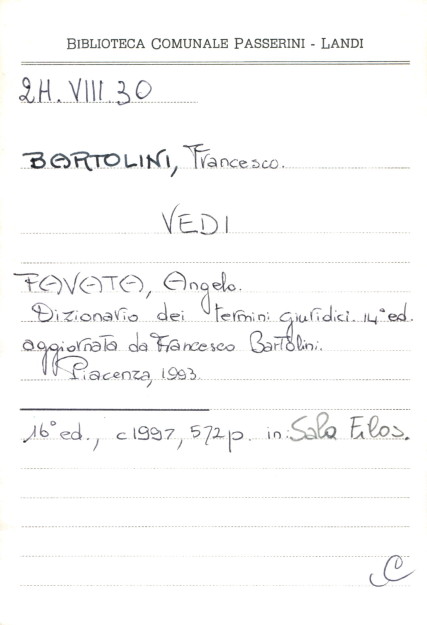 BIBLIOTECA COMUNALE PASSERINI - LANDI
2H. VIII. 30
BARTOLINI, Francesco.
VEDI
FAVATA, Angelo.
Dizionario dei termini giuridici. 14° ed.
aggiornata da Francesco Bartolini.
Piacenza, 1993.
16° ed., c1997, 572 p. in: Sala Filos.
C